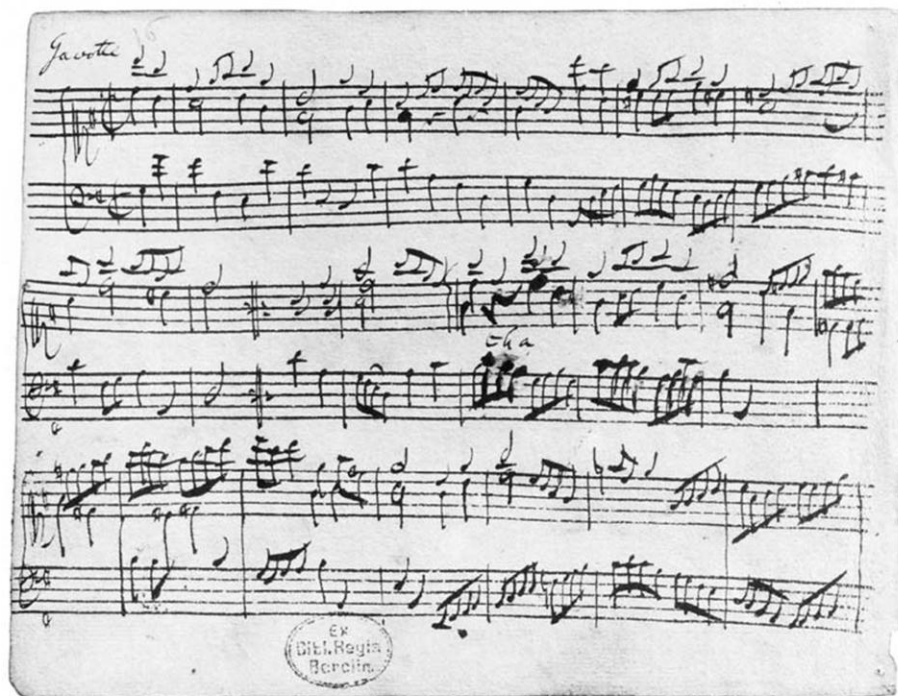 Gavotte 16
cha
Ex
Bibl. Regia
Berolin.